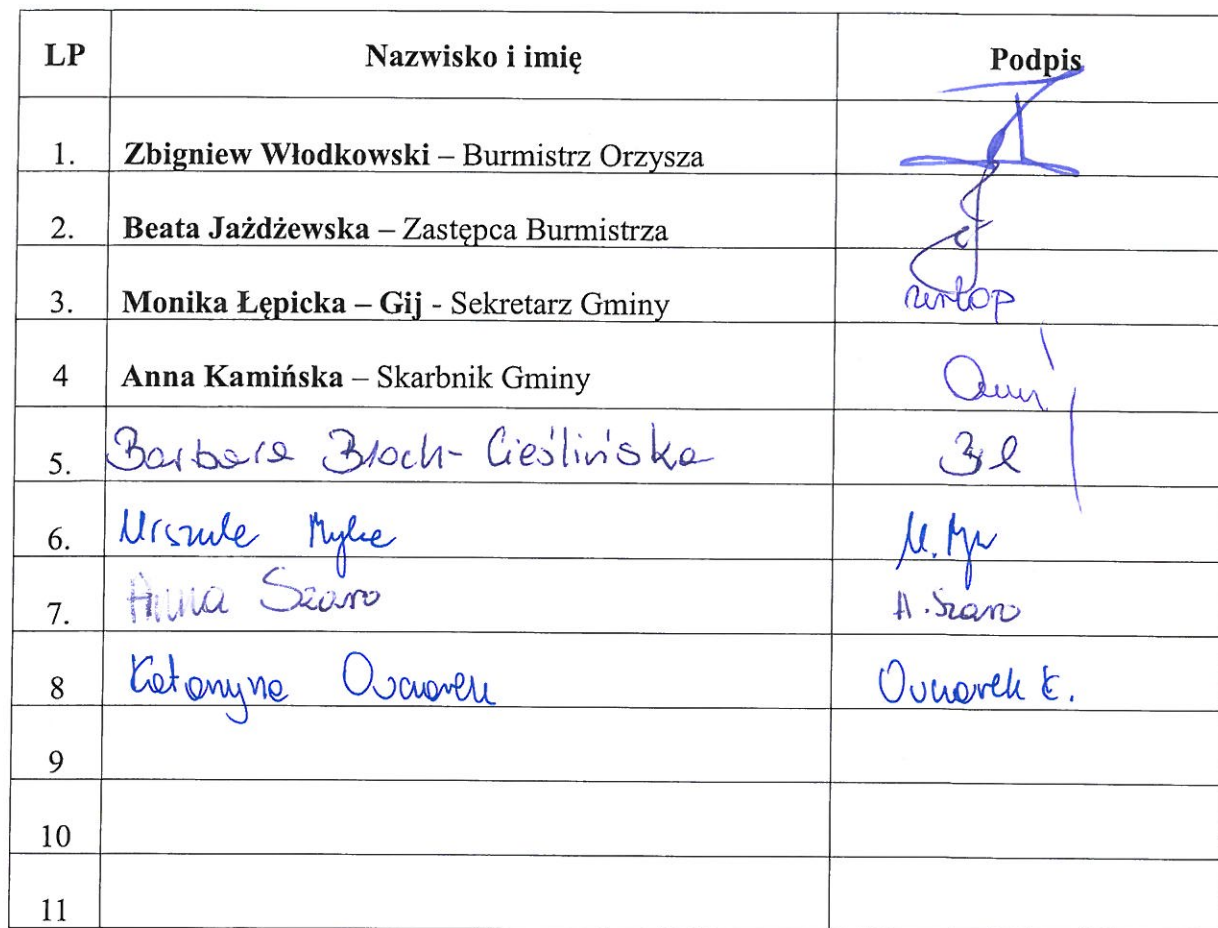 LP Nazwisko i imię Podpis
1. Zbigniew Włodkowski – Burmistrz Orzysza
2. Beata Jażdżewska – Zastępca Burmistrza
3. Monika Łępicka – Gij - Sekretarz Gminy urlop
4 Anna Kamińska – Skarbnik Gminy
5. Barbara Bloch-Cieślińska
6. Urszula Myka
7. Anna Szaro A. Szaro
8 Katarzyna Owczarek Owczarek K.
9
10
11